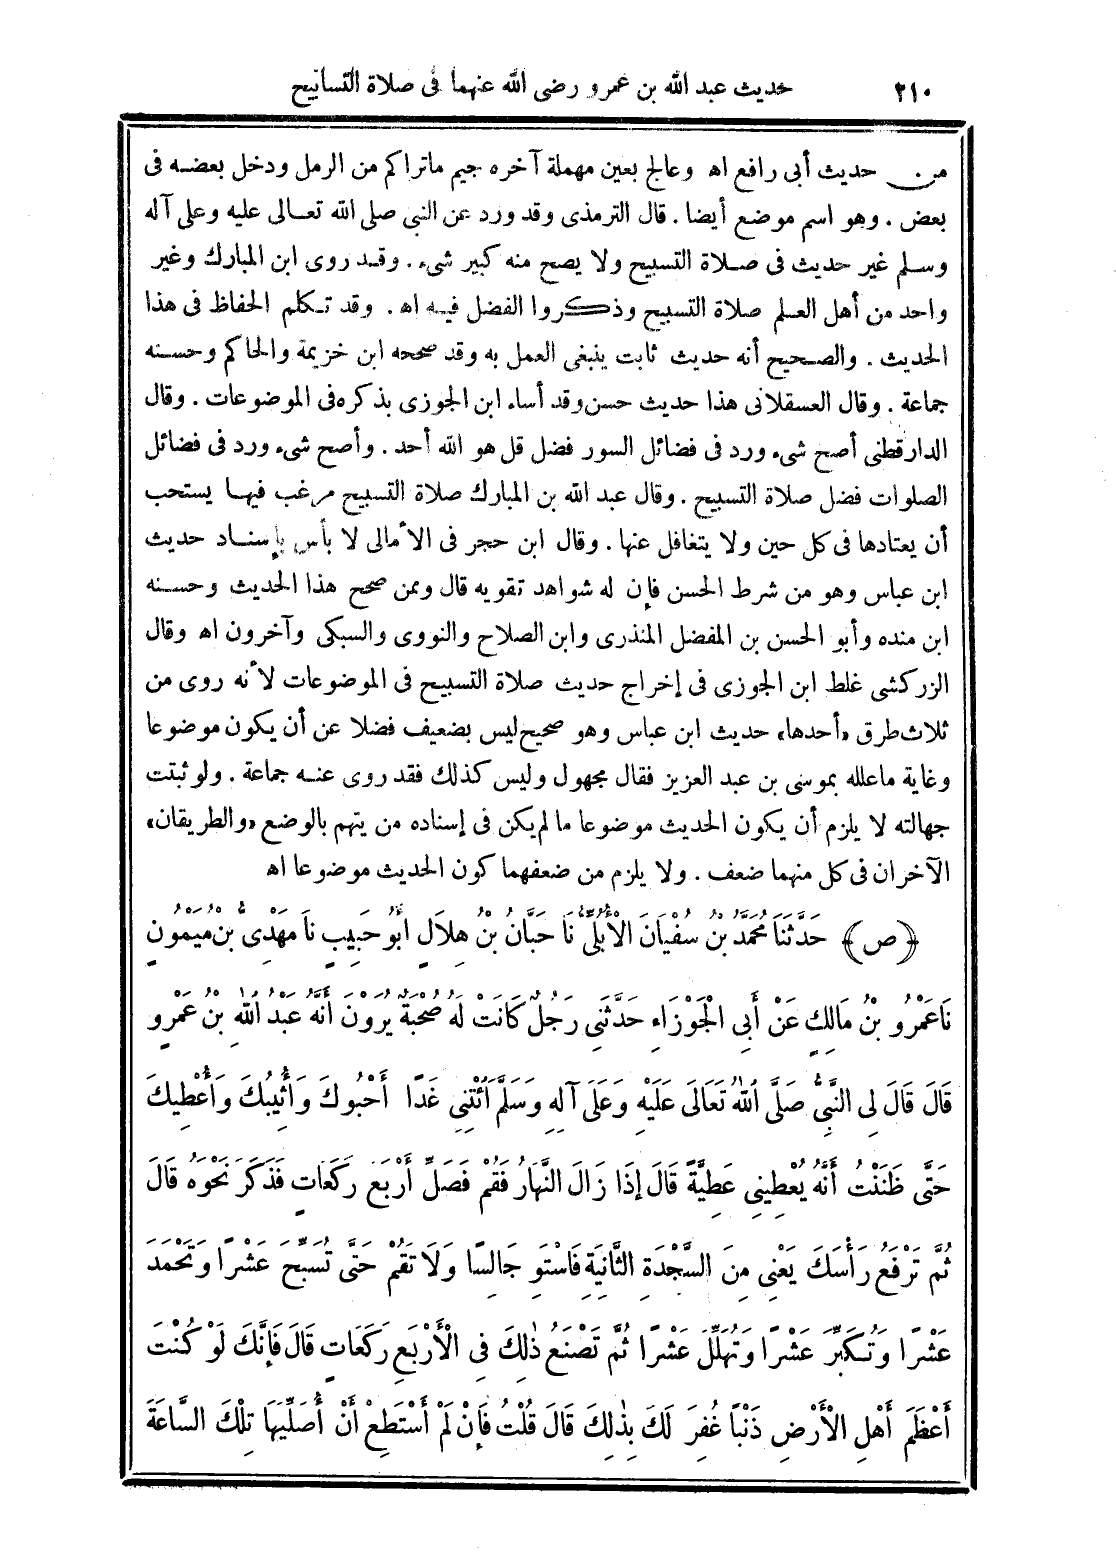 ٢١٠ حديث عبد الله بن عمرو رضى الله عنهما فى صلاة التسابيح
من حديث أبى رافع اه وعالج بعين مهملة آخره جيم ماتراكم من الرمل ودخل بعضه فى
بعض . وهو اسم موضع أيضا . قال الترمذى وقد ورد عن النبى صلى الله تعالى عليه وعلى آله
وسلم غير حديث فى صلاة التسبيح ولا يصح منه كبير شىء . وقد روى ابن المبارك وغير
واحد من أهل العلم صلاة التسبيح وذكروا الفضل فيه اه . وقد تكلم الحفاظ فى هذا
الحديث . والصحيح أنه حديث ثابت ينبغى العمل به وقد صححه ابن خزيمة والحاكم وحسنه
جماعة . وقال العسقلانى هذا حديث حسن وقد أساء ابن الجوزى بذكره فى الموضوعات . وقال
الدارقطنى أصح شىء ورد فى فضائل السور فضل قل هو الله أحد . وأصح شىء ورد فى فضائل
الصلوات فضل صلاة التسبيح . وقال عبد الله بن المبارك صلاة التسبيح مرغب فيها يستحب
أن يعتادها فى كل حين ولا يتغافل عنها . وقال ابن حجر فى الأمالى لا بأس بإسناد حديث
ابن عباس وهو من شرط الحسن فإن له شواهد تقويه قال وممن صحح هذا الحديث وحسنه
ابن منده وأبو الحسن بن المفضل المنذرى وابن الصلاح والنووى والسبكى وآخرون اه وقال
الزركشى غلط ابن الجوزى فى إخراج حديث صلاة التسبيح فى الموضوعات لأنه روى من
ثلاث طرق «أحدها» حديث ابن عباس وهو صحيح ليس بضعيف فضلا عن أن يكون موضوعا
وغاية ماعلله بموسى بن عبد العزيز فقال مجهول وليس كذلك فقد روى عنه جماعة . ولو ثبتت
جهالته لا يلزم أن يكون الحديث موضوعا ما لم يكن فى إسناده من يتهم بالوضع «والطريقان»
الآخران فى كل منهما ضعف . ولا يلزم من ضعفهما كون الحديث موضوعا اه
﴿ص﴾ حَدَّثَنَا مُحَمَّدُ بْنُ سُفْيَانَ الْأُبُلِّىُّ نَا حَبَّانُ بْنُ هِلَالٍ أَبُو حَبِيبٍ نَا مَهْدِىُّ بْنُ مَيْمُونٍ
نَا عَمْرُو بْنُ مَالِكٍ عَنْ أَبِى الْجَوْزَاءِ حَدَّثَنِى رَجُلٌ كَانَتْ لَهُ صُحْبَةٌ يُرَوْنَ أَنَّهُ عَبْدُ اللهِ بْنُ عَمْرٍو
قَالَ قَالَ لِى النَّبِىُّ صَلَّى اللهُ تَعَالَى عَلَيْهِ وَعَلَى آلِهِ وَسَلَّمَ ائْتِنِى غَدًا أَحْبُوكَ وَأُثِيبُكَ وَأُعْطِيكَ
حَتَّى ظَنَنْتُ أَنَّهُ يُعْطِينِى عَطِيَّةً قَالَ إِذَا زَالَ النَّهَارُ فَقُمْ فَصَلِّ أَرْبَعَ رَكَعَاتٍ فَذَكَرَ نَحْوَهُ قَالَ
ثُمَّ تَرْفَعُ رَأْسَكَ يَعْنِى مِنَ السَّجْدَةِ الثَّانِيَةِ فَاسْتَوِ جَالِسًا وَلَا تَقُمْ حَتَّى تُسَبِّحَ عَشْرًا وَتَحْمَدَ
عَشْرًا وَتُكَبِّرَ عَشْرًا وَتُهَلِّلَ عَشْرًا ثُمَّ تَصْنَعُ ذٰلِكَ فِى الْأَرْبَعِ رَكَعَاتٍ قَالَ فَإِنَّكَ لَوْ كُنْتَ
أَعْظَمَ أَهْلِ الْأَرْضِ ذَنْبًا غُفِرَ لَكَ بِذٰلِكَ قَالَ قُلْتُ فَإِنْ لَمْ أَسْتَطِعْ أَنْ أُصَلِّيَهَا تِلْكَ السَّاعَةَ